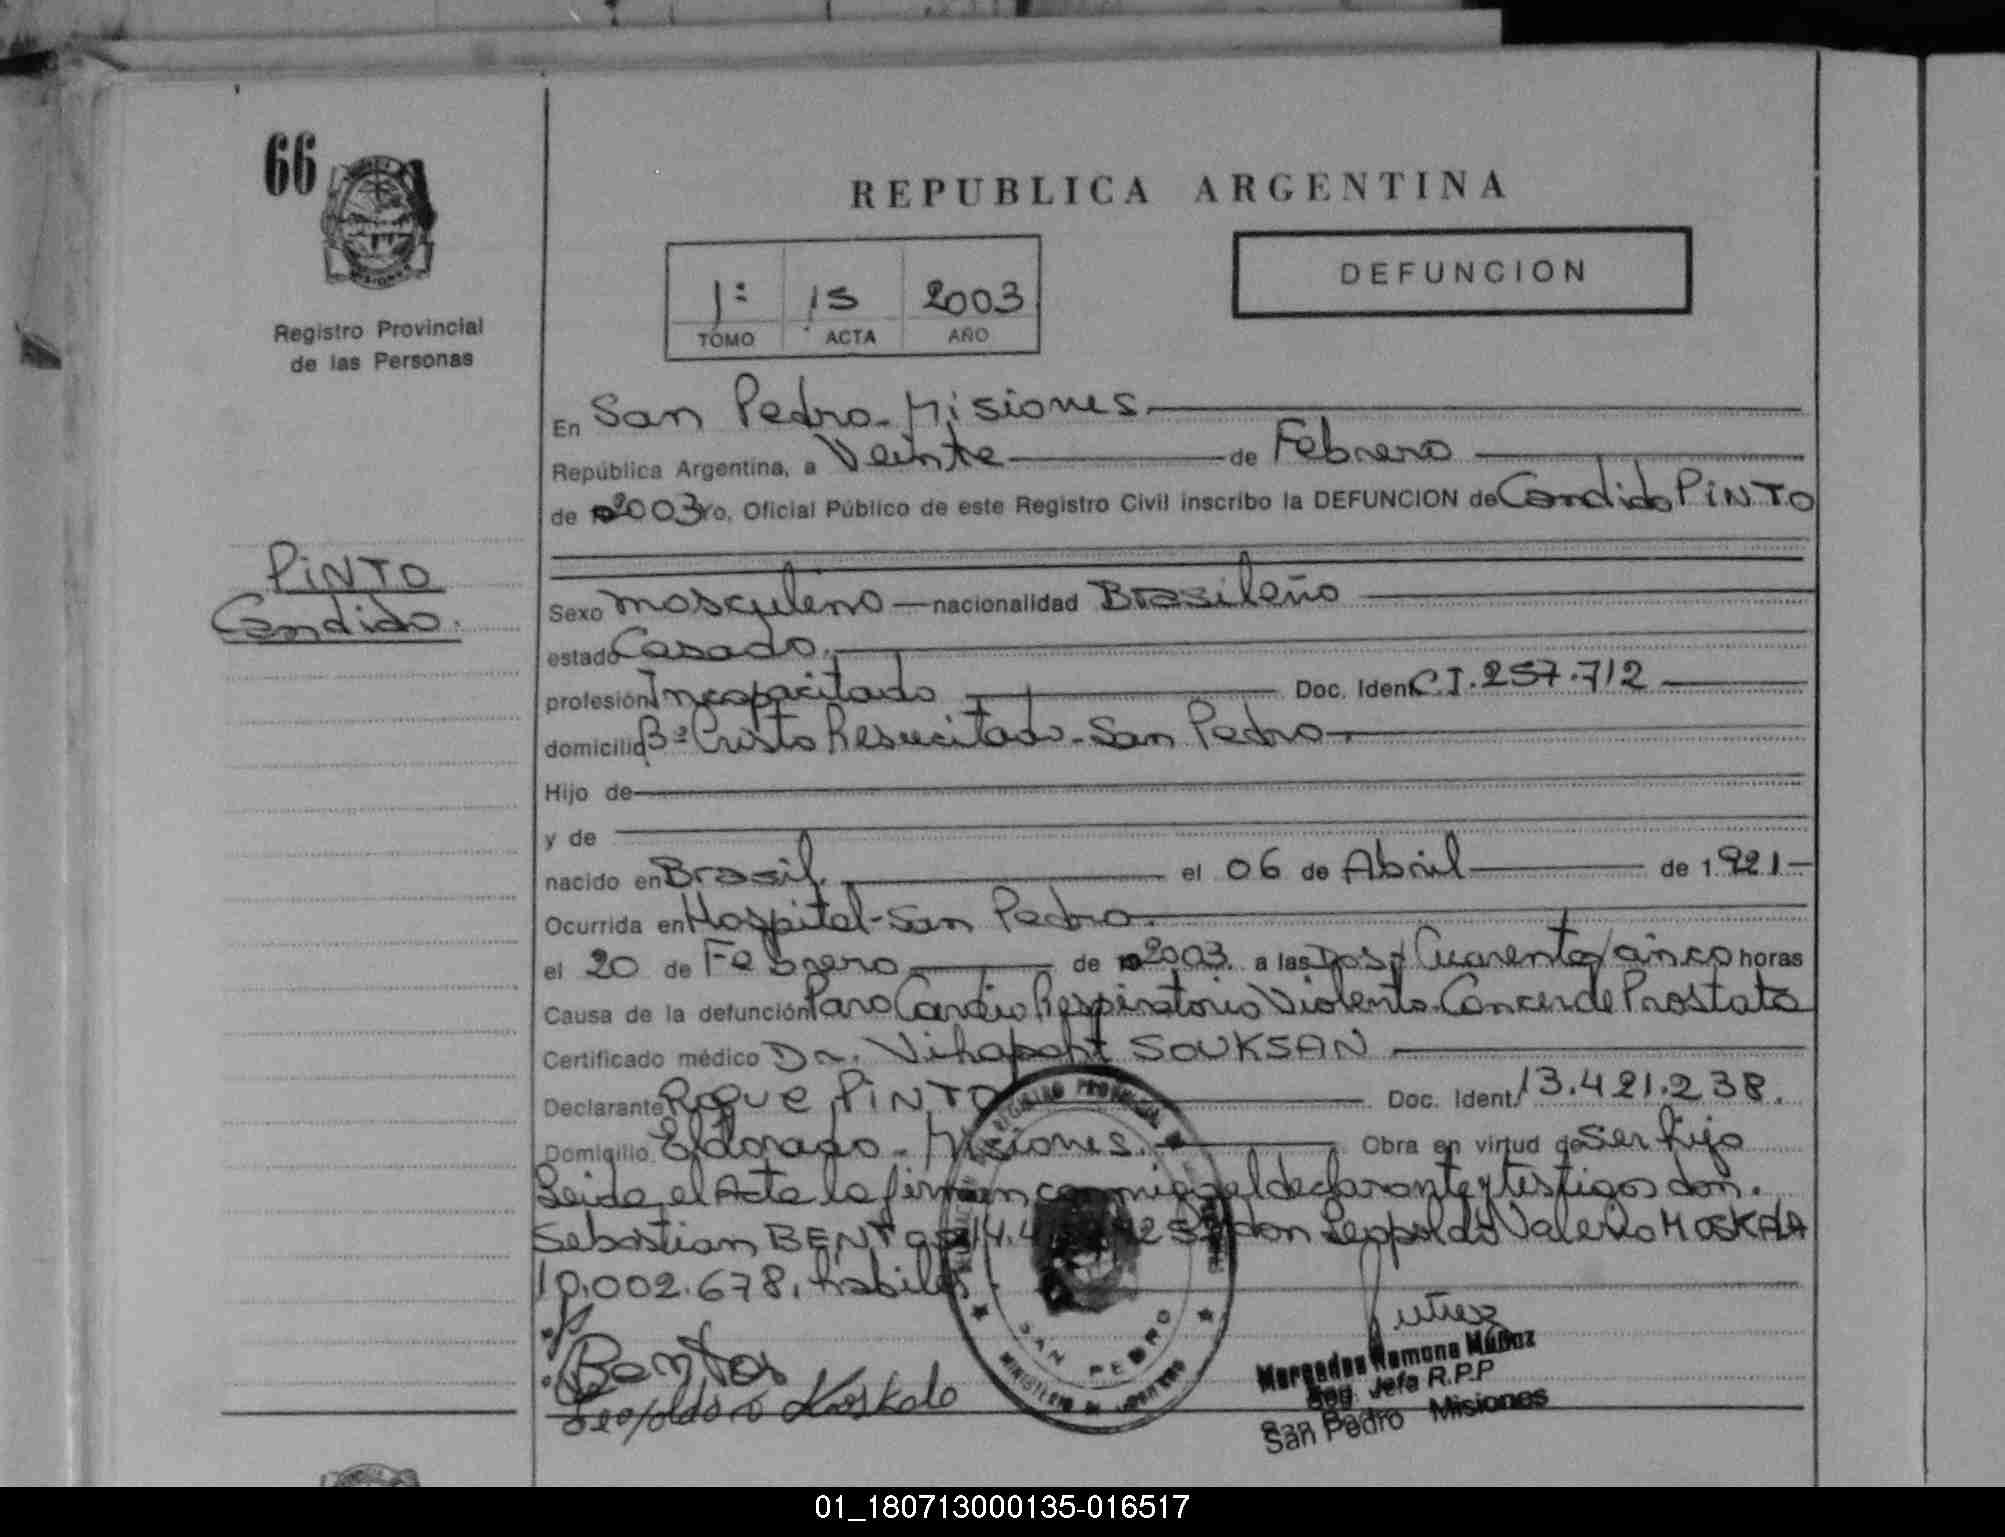 66
Registro Provincial
de las Personas
PINTO
Candido.
REPUBLICA ARGENTINA
1º 15 2003
TOMO ACTA AÑO
DEFUNCION
En San Pedro - Misiones
República Argentina, a Veinte de Febrero
de 2003 Yo, Oficial Público de este Registro Civil inscribo la DEFUNCION de Candido PINTO
Sexo masculino nacionalidad Brasileño
estado Casado.
profesión Incapacitado Doc. Ident. C.I. 257.712
domicilio Bº Cristo Resucitado - San Pedro
Hijo de
y de
nacido en Brasil. el 06 de Abril de 1921
Ocurrida en Hospital - San Pedro.
el 20 de Febrero de 2003. a las Dos y Cuarenta/cinco horas
Causa de la defunción Paro Cardio Respiratorio Violento. Cancer de Prostata
Certificado médico Dr. SOUKSAN
Declarante Roque PINTO Doc. Ident. 13.421.238.
Domicilio Eldorado - Misiones. Obra en virtud de Ser hijo
Leida el Acta la firman conmigo el declarante y testigos don.
Sebastian 14.4 don Leopoldo Valerio MOSKALA
10.002.678, habiles.
REGISTRO PROVINCIAL
SAN PEDRO
Bentos
Leopoldo
Mercedes Ramona Muñoz
Jefa R.P.P
San Pedro Misiones
01_180713000135-016517